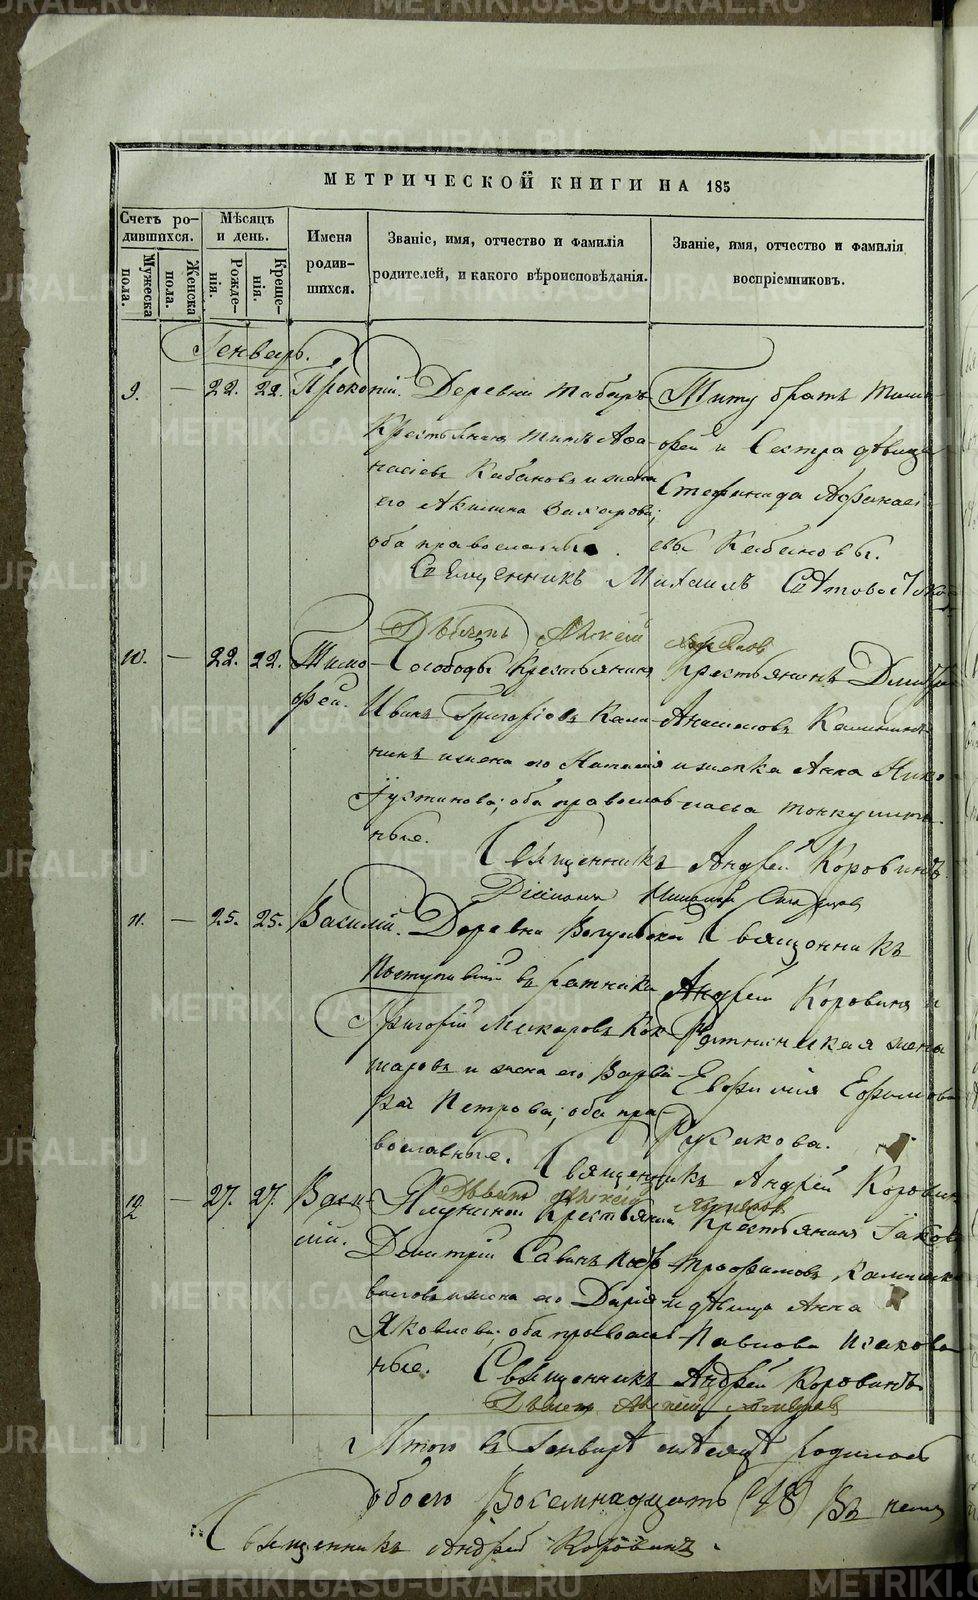 МЕТРИЧЕСКОЙ КНИГИ НА 185
Счетъ ро-
дившихся.
Мужеска
пола.
Женска
пола.
Мѣсяцъ
и день.
Рожде-
нія.
Креще-
нія.
Имена
родив-
шихся.
Званіе, имя, отчество и фамилія
родителей, и какого вѣроисповѣданія.
Званіе, имя, отчество и фамилія
воспріемниковъ.
Генварь.
9. — 22. 22. Прокопій. Деревни Табаръ
Крестьянинъ Титъ Афа-
насіевъ Кабановъ и жена
его Акилина Захарова;
оба православные.
Титу братъ Тимо-
фей и Сестра дѣвица
Стефанида Афанасі-
евы Кабановы.
Священникъ Михаилъ
10. — 22. 22. Тимо-
фей.
Слободы Крестьянинъ
Иванъ Григоріевъ Кали-
нинъ и жена его Наталія
Іустинова; оба православ-
ные.
Крестьянинъ Дмитрій
Калининъ
и женка Анна
Священникъ Андрей Коровинъ
11. — 25. 25. Василій. Деревни
Поступившій въ ратники
Григорій Макаровъ Кок-
шаровъ и жена его Варва-
ра Петрова; оба пра-
вославные.
Священникъ
Андрей Коровинъ и
Ратническая жена
Евфимія Ефимова
Русакова.
Священникъ Андрей Коровинъ
12. — 27. 27. Васи-
лій.
Крестьянинъ
Димитрій Савинъ
и жена его Дарія
Яковлева; оба православ-
ные.
Крестьянинъ Іаковъ
Трофимовъ
и дѣвица Анна
Павлова Исакова
Священникъ Андрей Коровинъ
Итого въ Генварѣ мѣсяцѣ родилось
обоего Восемнадцать (18) Въ чемъ
Священникъ Андрей Коровинъ.
METRIKI.GASO-URAL.RU